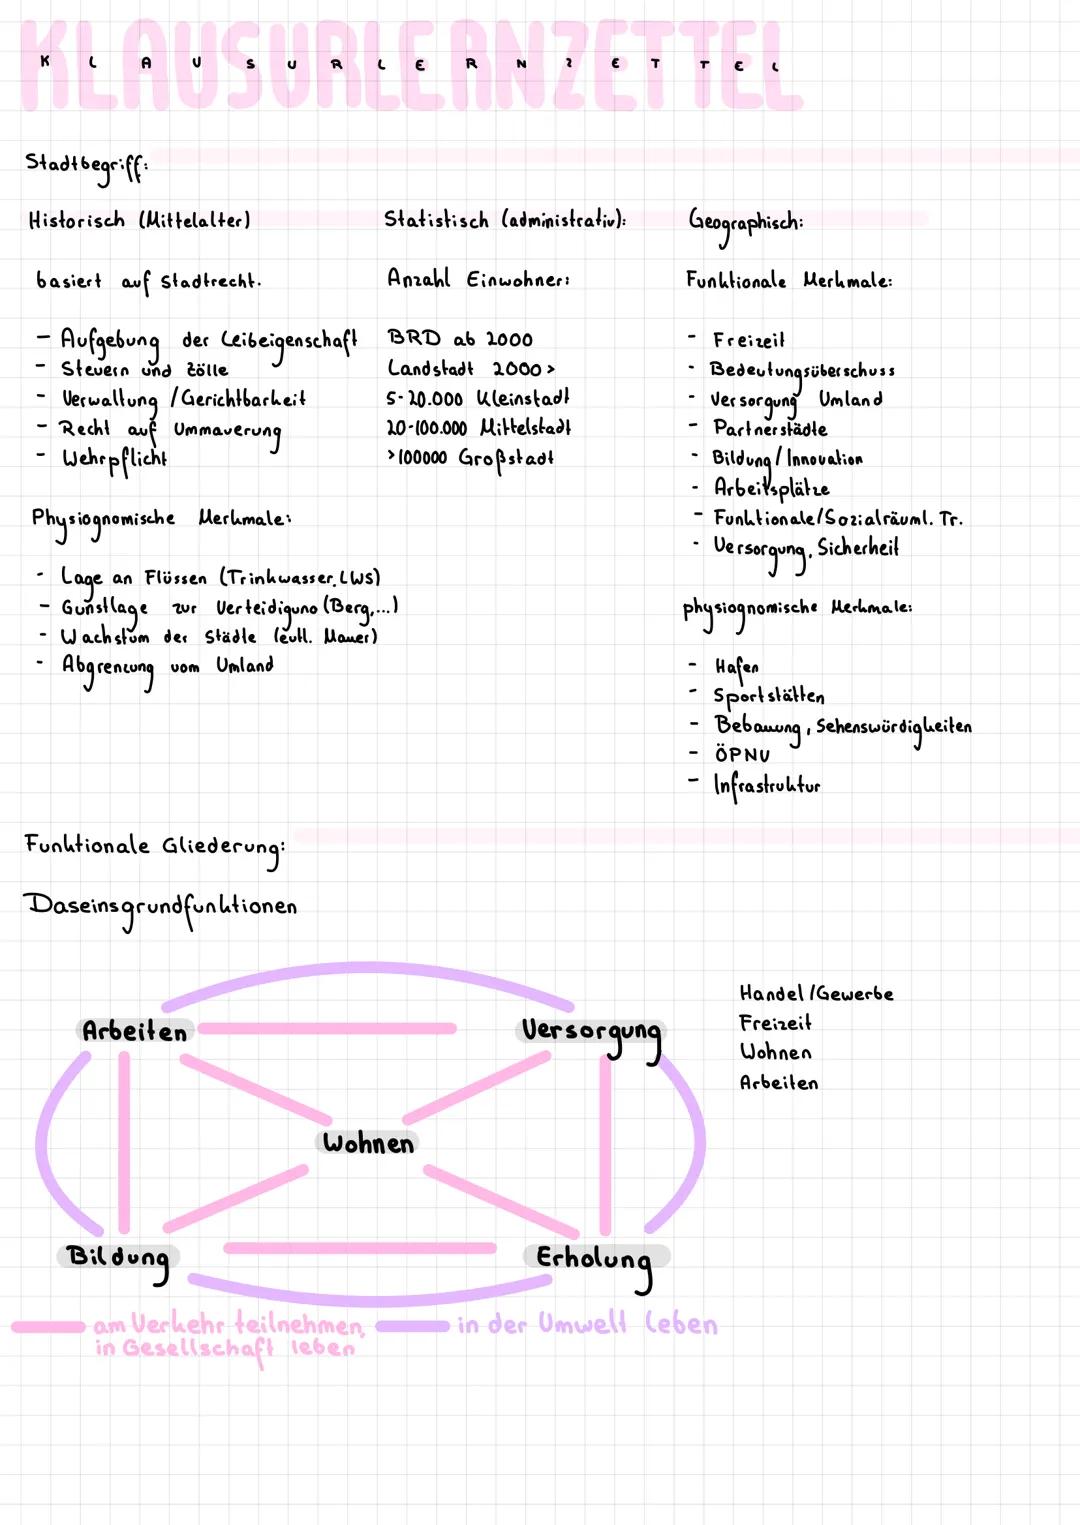 KLAUSURLERNZETTEL
K L A U S U R L E R N Z E T T E L
Stadtbegriff:
Historisch (Mittelalter)
basiert auf Stadtrecht.
- Aufgebung der Leibeigenschaft
- Steuern und Zölle
- Verwaltung / Gerichtbarkeit
- Recht auf Ummauerung
- Wehrpflicht
Physiognomische Merkmale:
- Lage an Flüssen (Trinkwasser, LWS)
- Gunstlage zur Verteidigung (Berg,...)
- Wachstum der Städte (evtl. Mauer)
- Abgrenzung vom Umland
Statistisch (administrativ):
Anzahl Einwohner:
BRD ab 2000
Landstadt 2000 >
5-20.000 Kleinstadt
20-100.000 Mittelstadt
>100000 Großstadt
Geographisch:
Funktionale Merkmale:
- Freizeit
- Bedeutungsüberschuss
- Versorgung Umland
- Partnerstädte
- Bildung / Innovation
- Arbeitsplätze
- Funktionale/Sozialräuml. Tr.
- Versorgung, Sicherheit
physiognomische Merkmale:
- Hafen
- Sportstätten
- Bebauung, Sehenswürdigkeiten
- ÖPNV
- Infrastruktur
Funktionale Gliederung:
Daseinsgrundfunktionen
Arbeiten
Versorgung
Wohnen
Bildung
Erholung
Handel / Gewerbe
Freizeit
Wohnen
Arbeiten
am Verkehr teilnehmen,
in Gesellschaft leben
in der Umwelt leben